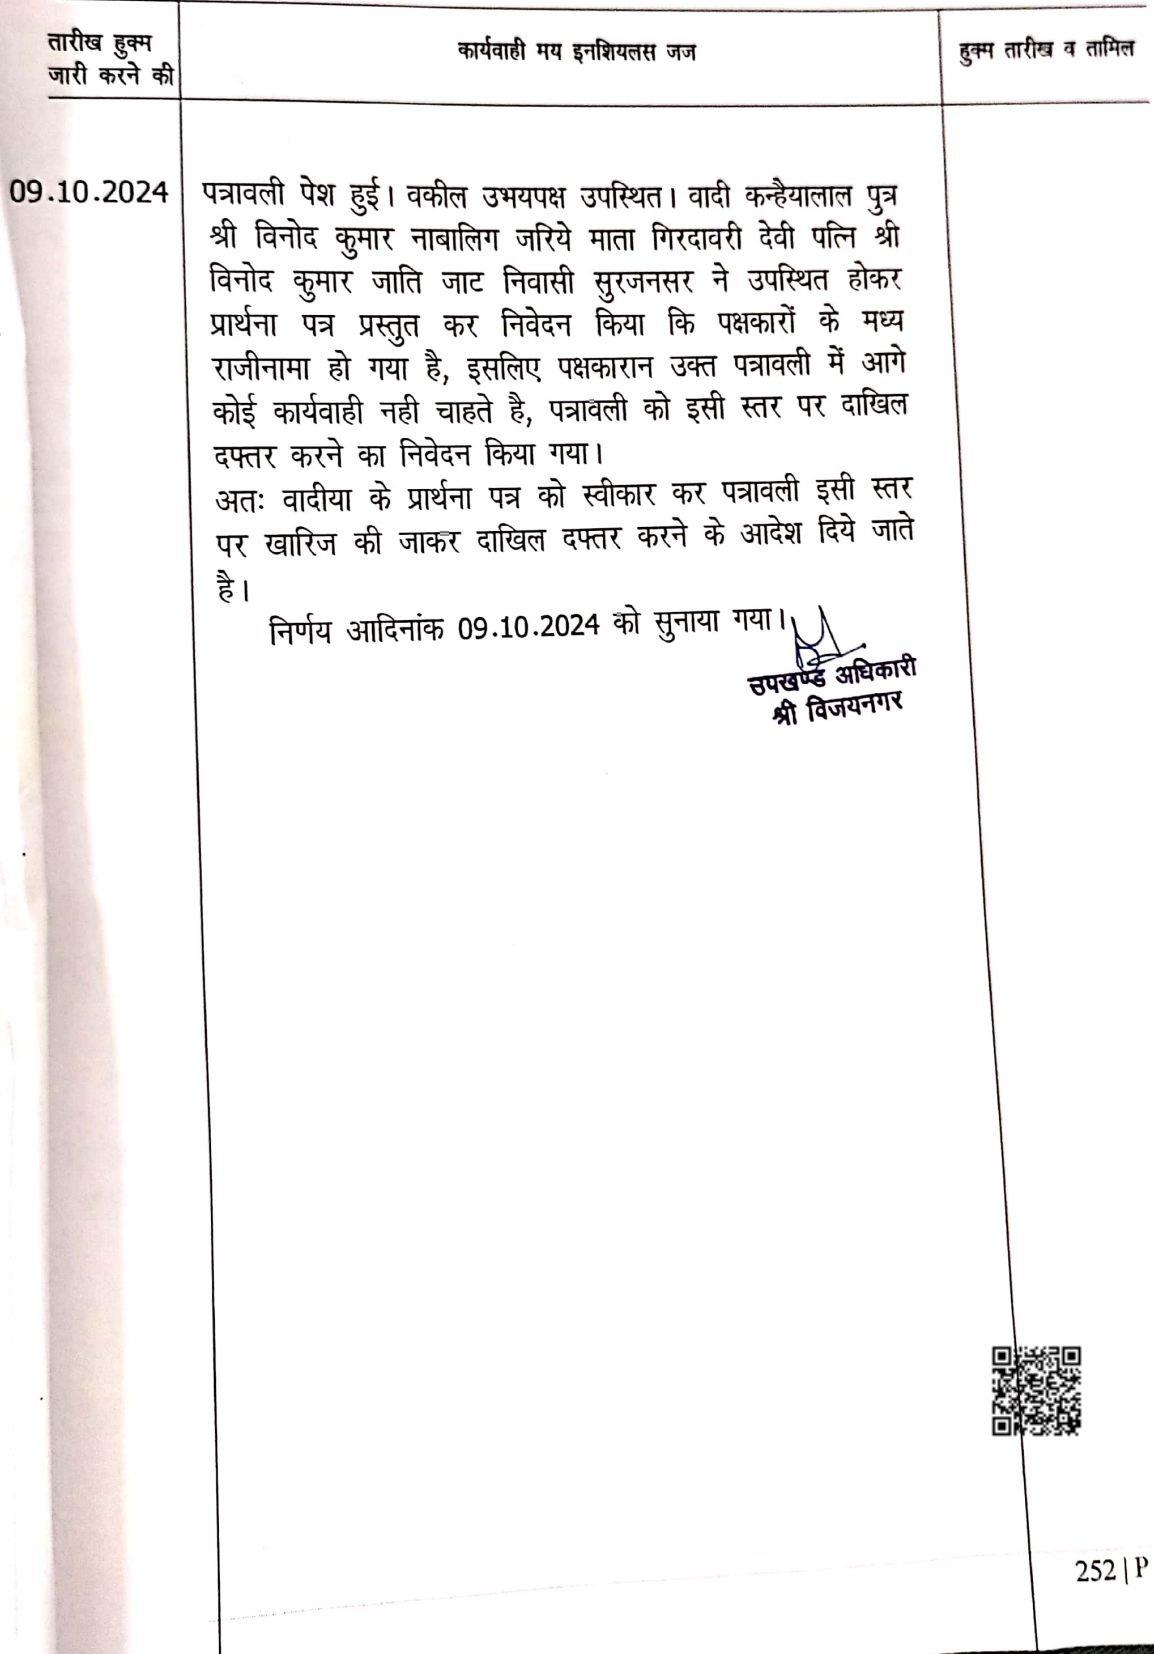 तारीख हुक्म
जारी करने की
कार्यवाही मय इनशियलस जज
हुक्म तारीख व तामिल
09.10.2024
पत्रावली पेश हुई। वकील उभयपक्ष उपस्थित। वादी कन्हैयालाल पुत्र
श्री विनोद कुमार नाबालिग जरिये माता गिरदावरी देवी पत्नि श्री
विनोद कुमार जाति जाट निवासी सुरजनसर ने उपस्थित होकर
प्रार्थना पत्र प्रस्तुत कर निवेदन किया कि पक्षकारों के मध्य
राजीनामा हो गया है, इसलिए पक्षकारान उक्त पत्रावली में आगे
कोई कार्यवाही नही चाहते है, पत्रावली को इसी स्तर पर दाखिल
दफ्तर करने का निवेदन किया गया।
अतः वादीया के प्रार्थना पत्र को स्वीकार कर पत्रावली इसी स्तर
पर खारिज की जाकर दाखिल दफ्तर करने के आदेश दिये जाते
है।
निर्णय आदिनांक 09.10.2024 को सुनाया गया।
उपखण्ड अधिकारी
श्री विजयनगर
252 | P